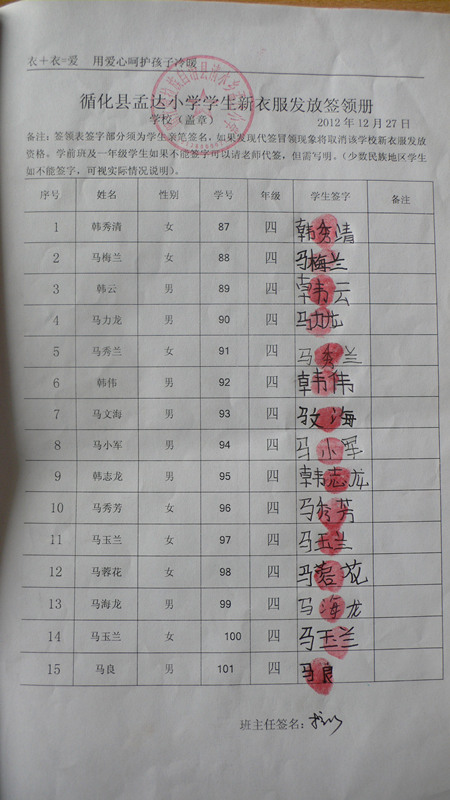 衣+衣=爱 用爱心呵护孩子冷暖
循化县孟达小学学生新衣服发放签领册
学校（盖章） 2012年12月27日
备注：签领表签字部分须为学生亲笔签名，如果发现代签冒领现象将取消该学校新衣服发放
资格。学前班及一年级学生如果不能签字可以请老师代签，但需写明。（少数民族地区学生
如不能签字，可视实际情况说明）。
序号 姓名 性别 学号 年级 学生签字 备注
1 韩秀清 女 87 四 韩秀清
2 马梅兰 女 88 四 马梅兰
3 韩云 男 89 四 韩云
4 马力龙 男 90 四 马力龙
5 马秀兰 女 91 四 马秀兰
6 韩伟 男 92 四 韩伟
7 马文海 男 93 四 马文海
8 马小军 男 94 四 马小军
9 韩志龙 男 95 四 韩志龙
10 马秀芳 女 96 四 马秀芳
11 马玉兰 女 97 四 马玉兰
12 马蓉花 女 98 四 马蓉花
13 马海龙 男 99 四 马海龙
14 马玉兰 女 100 四 马玉兰
15 马良 男 101 四 马良
班主任签名：